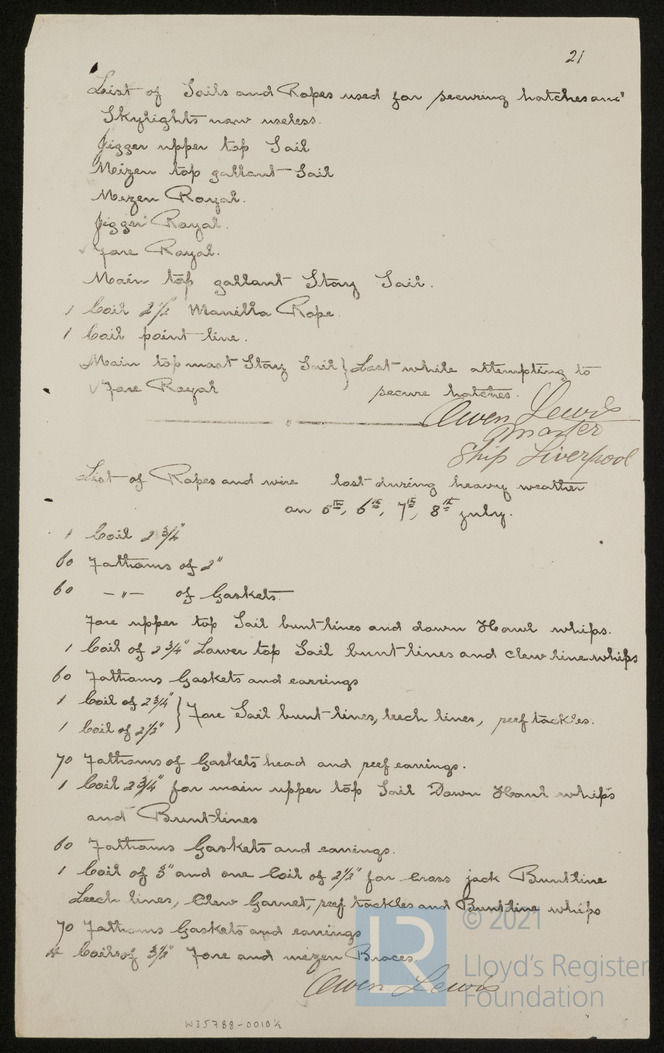 21
List of Sails and Ropes used for securing hatches and
Skylights now useless.
Jigger upper top Sail
Meizen top gallant Sail
Mezen Royal.
Jigger Royal.
✓ Fore Royal.
Main top gallant Stay Sail.
1 Coil 2½ Manilla Rope.
1 Coil point line.
Main top mast Stay Sail } Lost while attempting to
✓ Fore Royal secure hatches.
Owen Lewis
Master
Ship Liverpool
List of Ropes and wire lost during heavy weather
on 5th, 6th, 7th, 8th July.
1 Coil 2 3/4"
60 Fathoms of 2"
60 —"— of Gaskets
Fore upper top Sail bunt-lines and down Haul whips.
1 Coil of 2 3/4" Lower top Sail bunt-lines and clew line whips
60 Fathoms Gaskets and earrings
1 Coil of 2 3/4" } Fore Sail bunt-lines, leech lines, reef tackles.
1 Coil of 2½"
70 Fathoms of Gaskets head and reef earrings.
1 Coil 2 3/4" for main upper top Sail Down Haul whips
and Bunt-lines
60 Fathoms Gaskets and earrings.
1 Coil of 3" and one Coil of 2½" for Cross jack Buntline
Leech lines, Clew Garnet, reef tackles and Buntline whips
70 Fathoms Gaskets and earrings
4 Coils of 3½" Fore and mizen Braces.
Owen Lewis
WI5788-0010¼
LR
© 2021
Lloyd's Register
Foundation